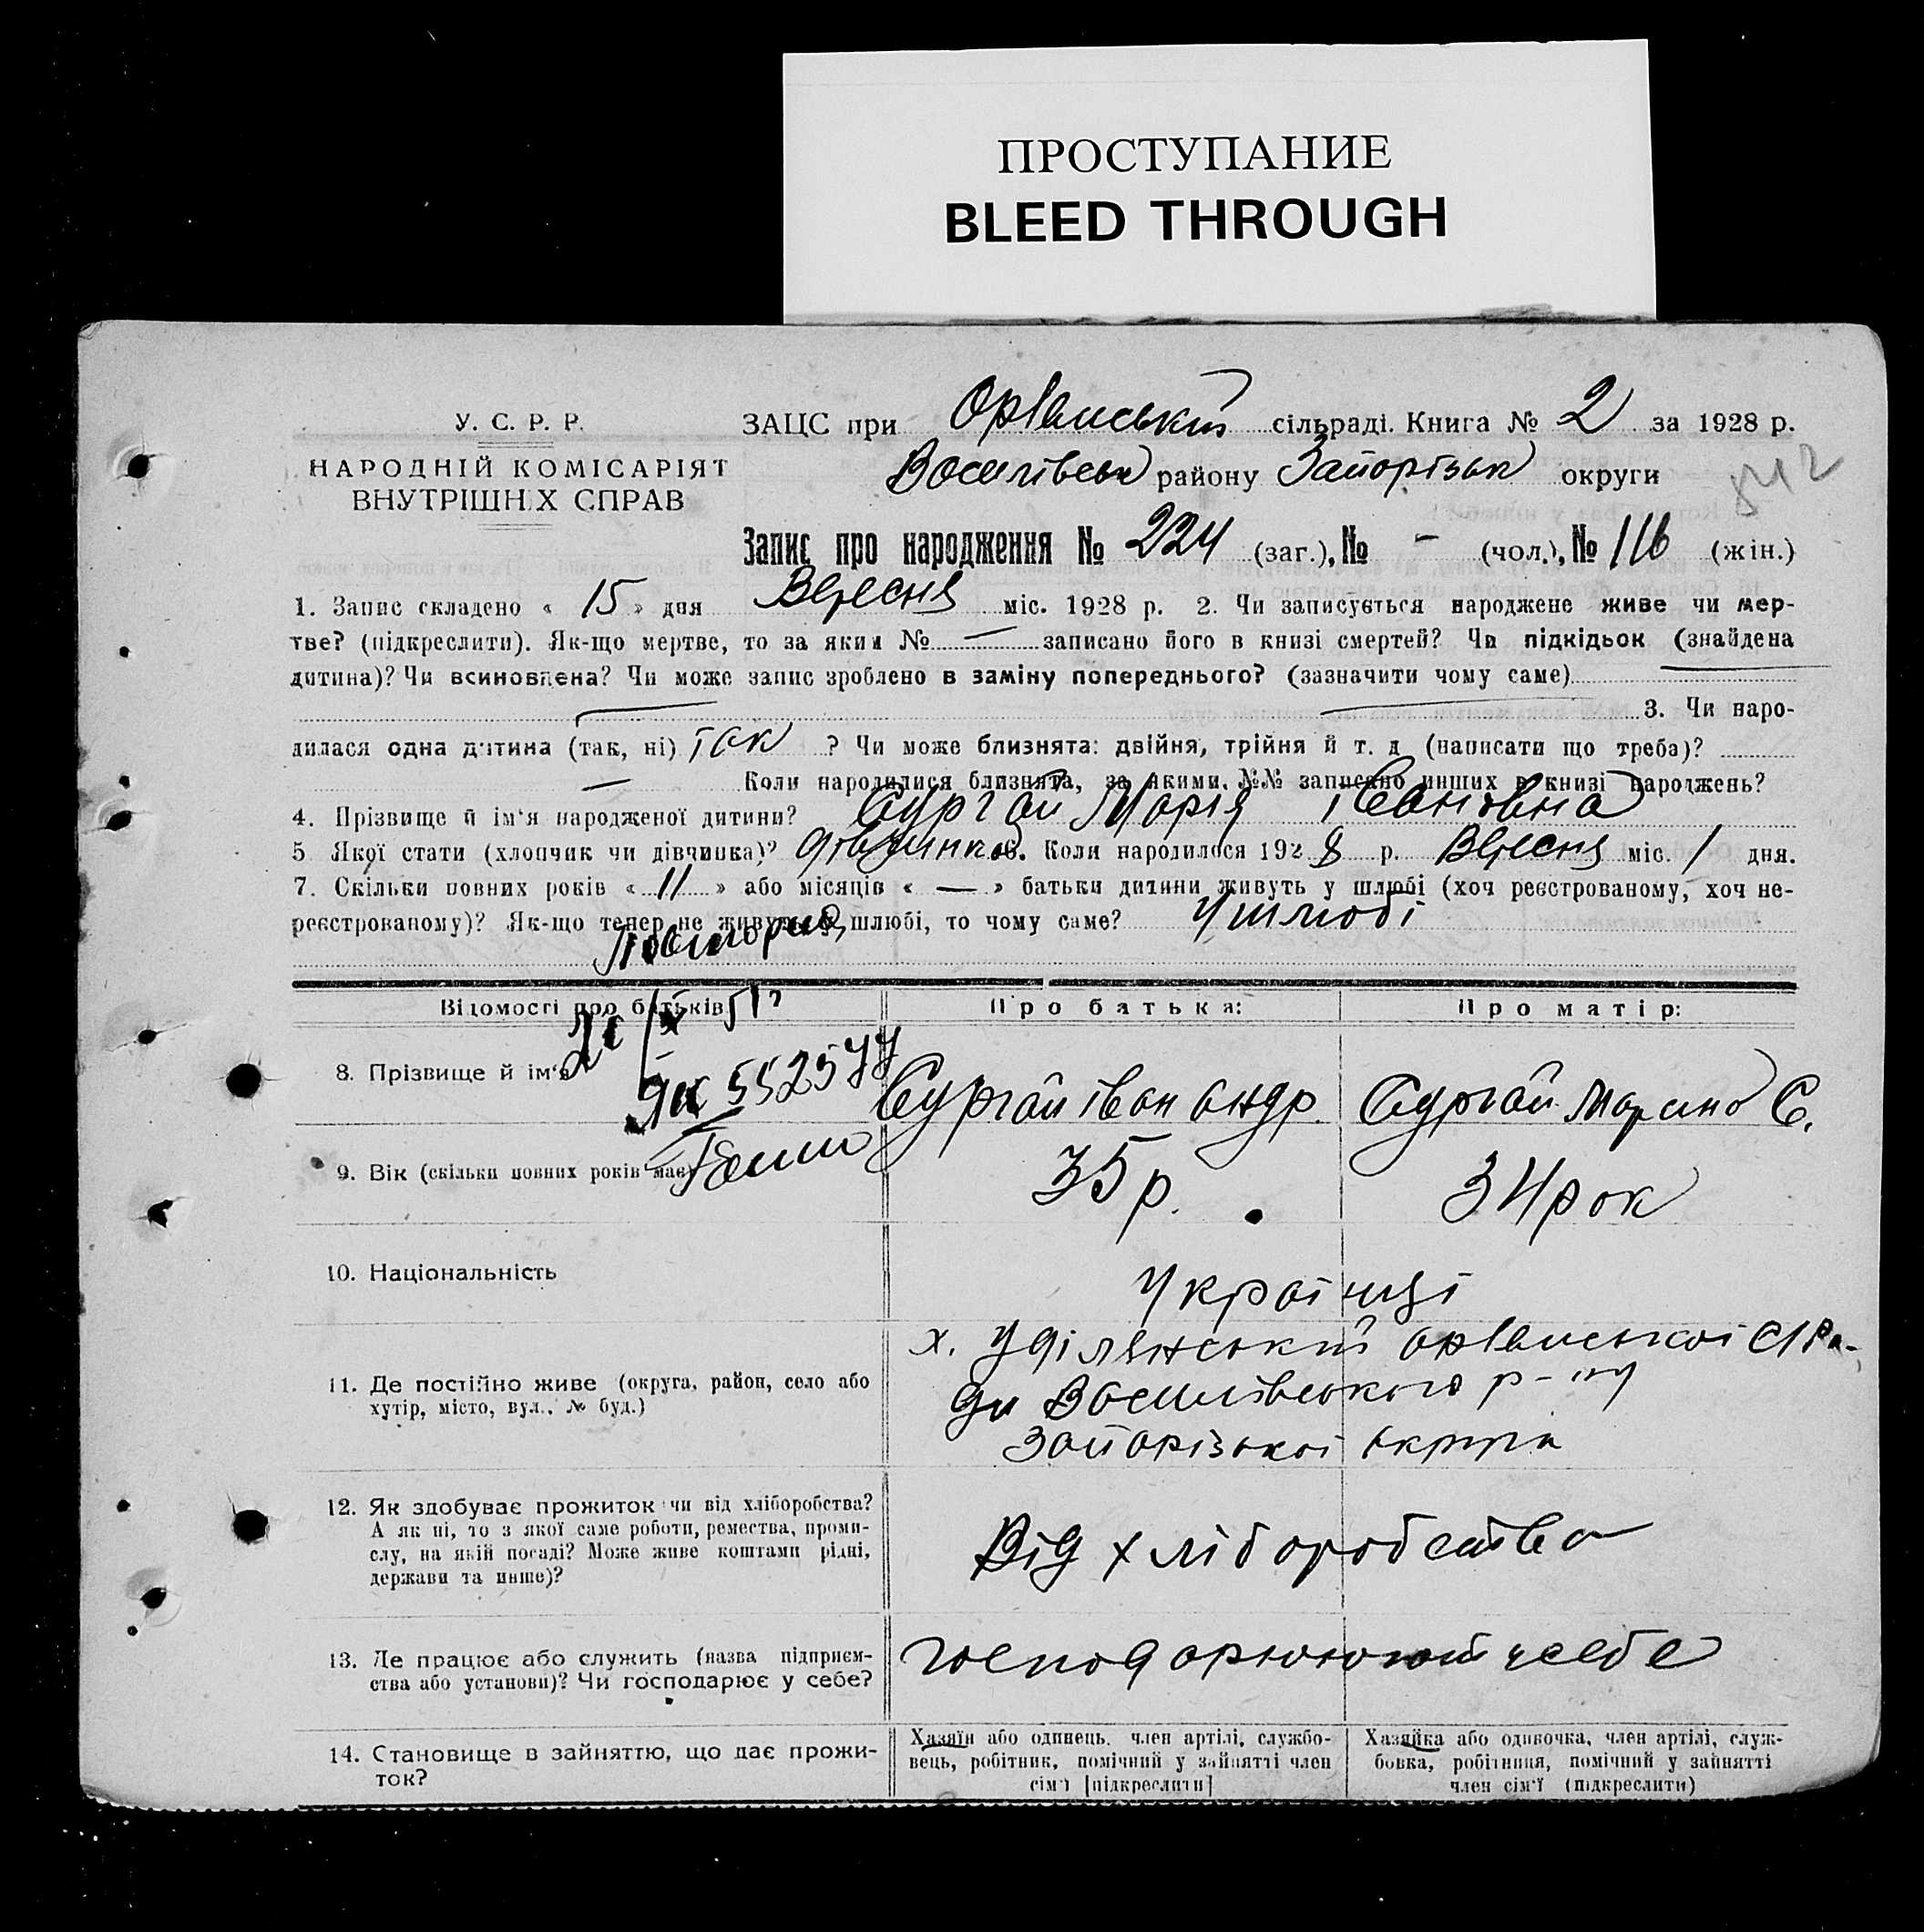 ПРОСТУПАНИЕ
BLEED THROUGH
У. С. Р. Р.
НАРОДНІЙ КОМІСАРІЯТ
ВНУТРІШНІХ СПРАВ
ЗАЦС при Орівський сільраді. Книга № 2 за 1928 р.
Василівськ району Запорізьк округи
842
Запис про народження № 224 (заг.), № - (чол.), № 116 (жін.)
1. Запис складено « 15 » дня Вересня міс. 1928 р. 2. Чи записується народжене живе чи мер-
тве? (підкреслити). Як-що мертве, то за яким № — записано його в книзі смертей? Чи підкідьок (знайдена
дитина)? Чи всиновлена? Чи може запис зроблено в заміну попереднього? (зазначити чому саме) —
3. Чи наро-
дилася одна дитина (так, ні) так ? Чи може близнята: двійня, трійня й т. д (написати що треба)?
— Коли народилися близнята, за якими №№ записано инших в книзі народжень?
4. Прізвище й ім'я народженої дитини? Сургай Марія Івановна
5 Якої стати (хлопчик чи дівчинка)? дівчинка 6. Коли народилося 1928 р. Вересня міс. 1 дня.
7. Скільки повних років « 11 » або місяців « — » батьки дитини живуть у шлюбі (хоч реєстрованому, хоч не-
реєстрованому)? Як-що тепер не живуть у шлюбі, то чому саме? У шлюбі
Повторне
Відомості про батьків
Про батька:
Про матір:
8. Прізвище й ім'я
552577
Сургай Іван Андр.
Сургай Марина С.
9. Вік (скільки повних років має)
35 р.
34 рок
10. Національність
Українці
11. Де постійно живе (округа, район, село або
хутір, місто, вул., № буд.)
х. Уділянський Орівської с/Ра-
ди Василівського р-ну
Запорізької округи
12. Як здобуває прожиток чи від хліборобства?
А як ні, то з якої саме роботи, ремества, проми-
слу, на якій посаді? Може живе коштами рідні,
держави та инше)?
Від хліборобства
13. Де працює або служить (назва підприєм-
ства або установи)? Чи господарює у себе?
господарюють у себе
14. Становище в зайняттю, що дає прожи-
ток?
Хазяїн або одинець, член артілі, службо-
вець, робітник, помічний у зайнятті член
сім'ї [підкреслити]
Хазяйка або одиночка, член артілі, служ-
бовка, робітниця, помічний у зайнятті
член сім'ї (підкреслити)